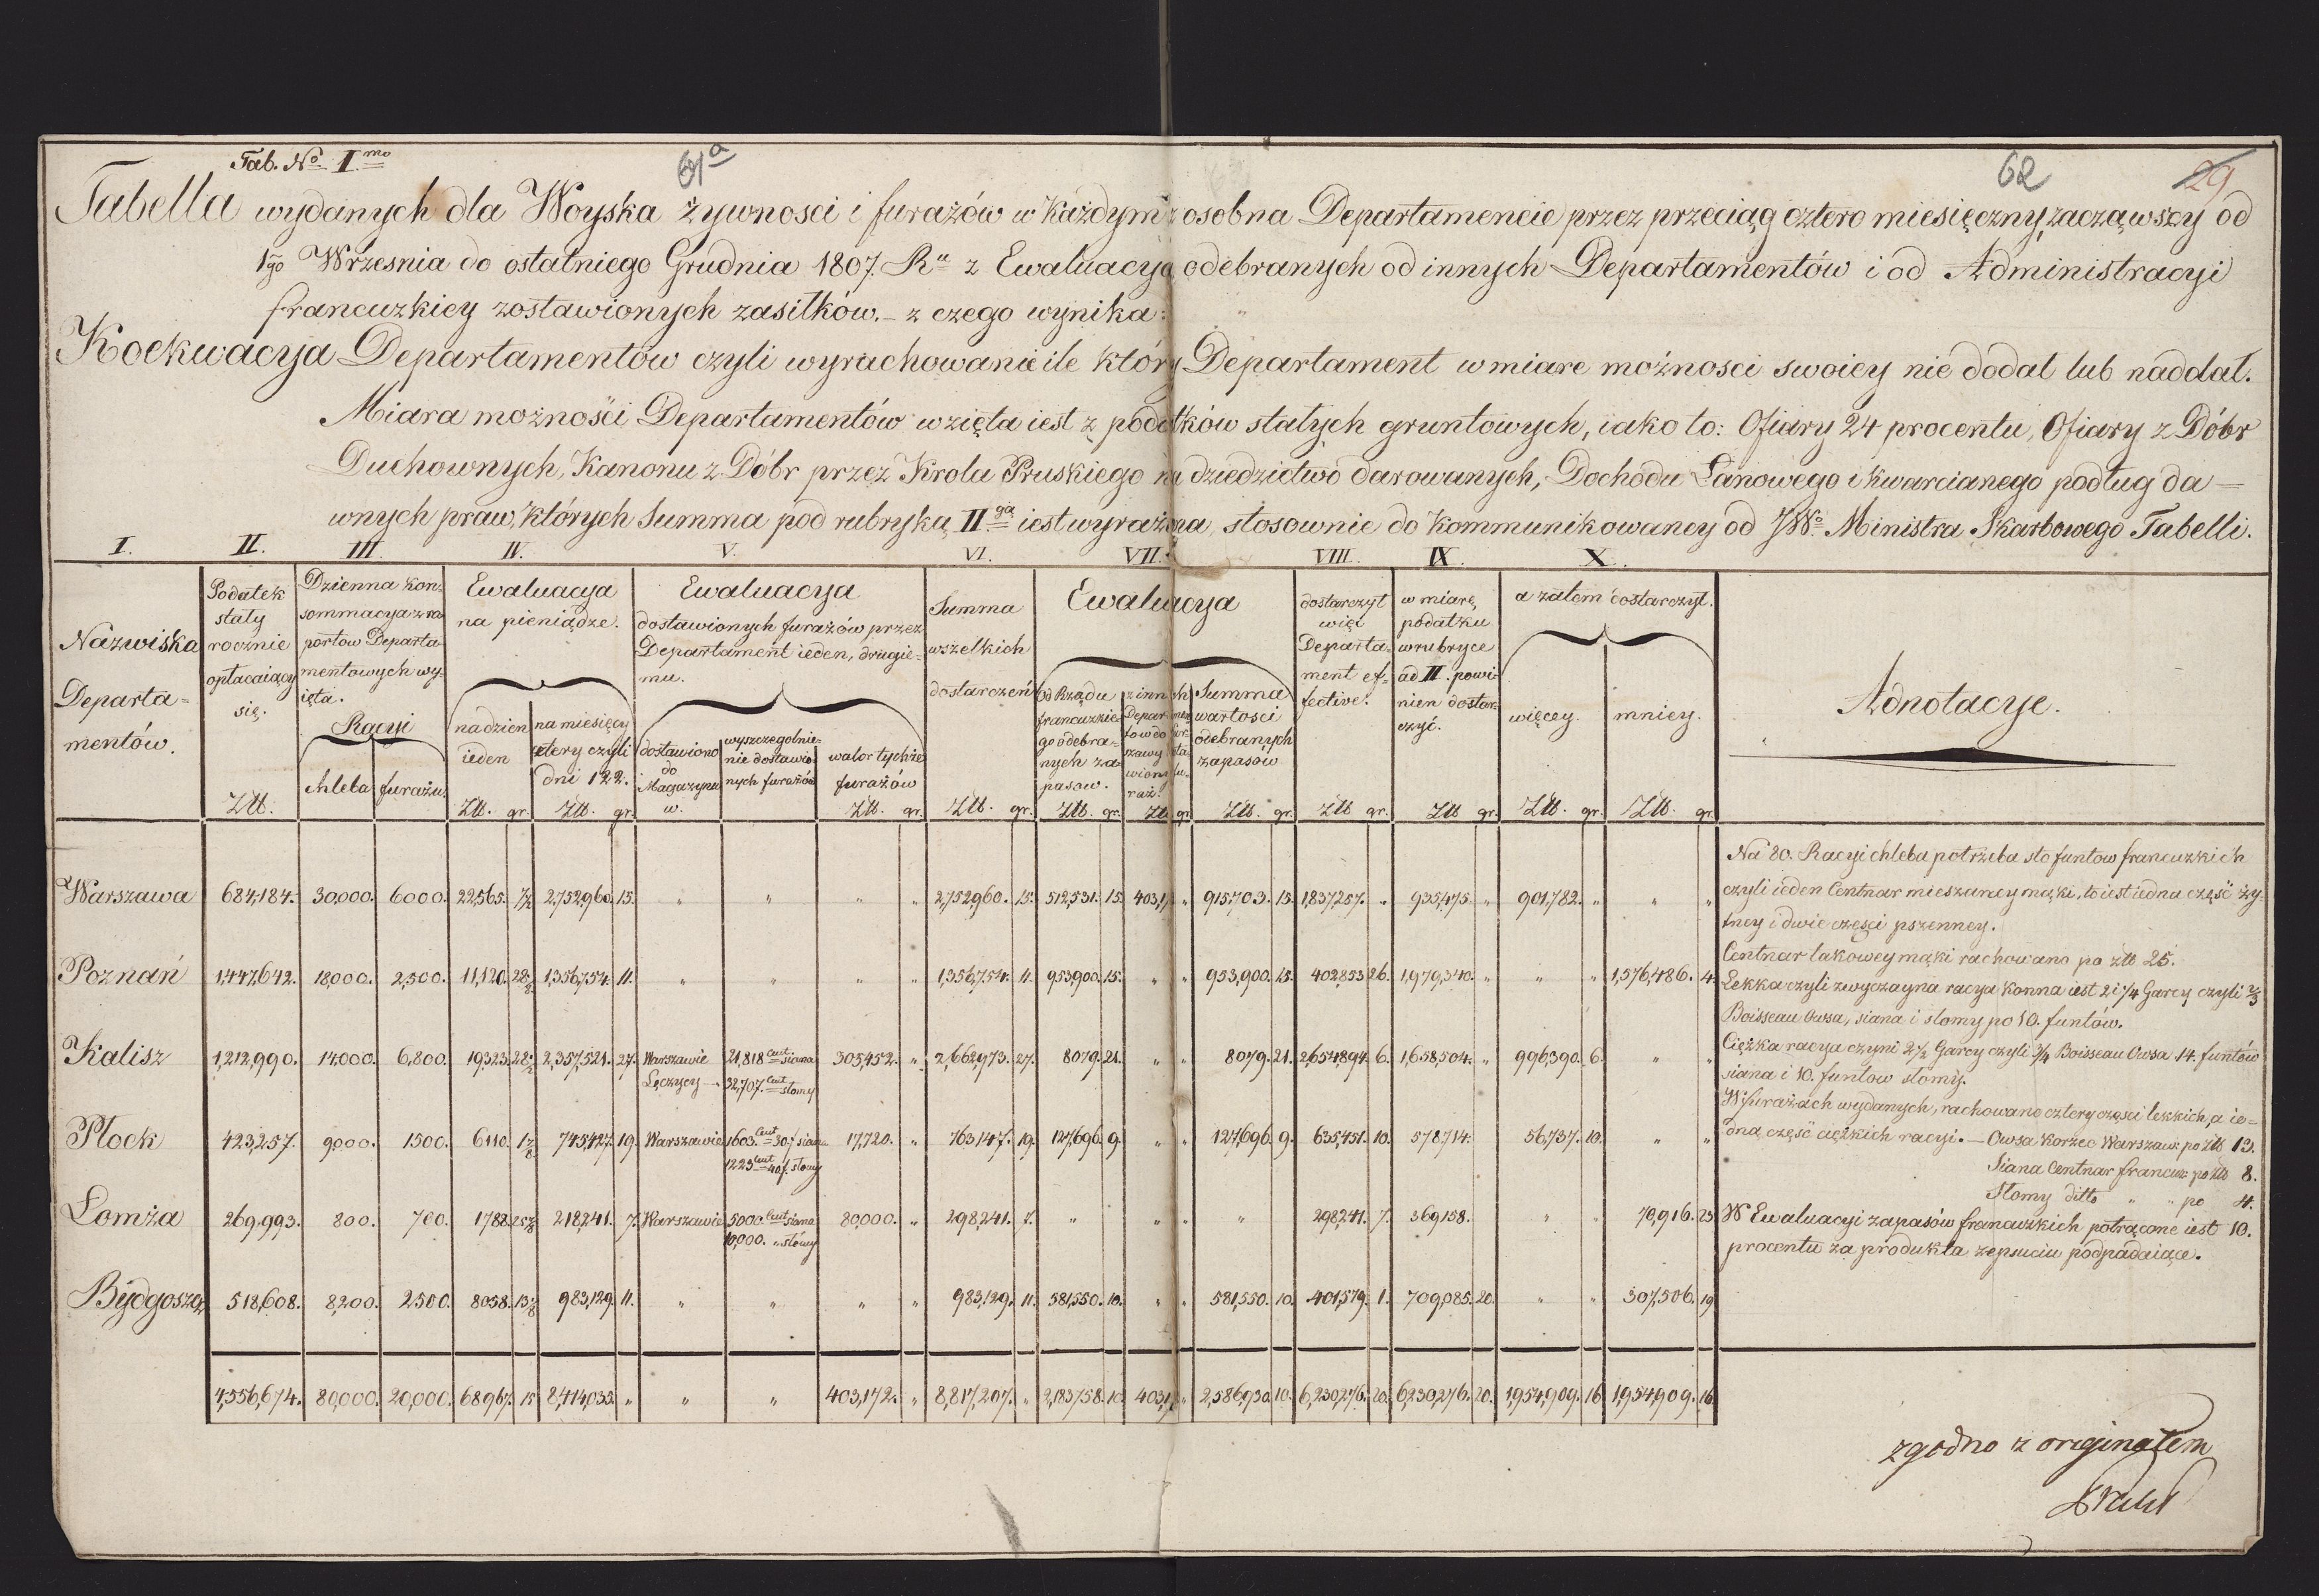 Tab. No I.mo
61a
62
29
Tabella wydanych dla Woyska żywnosci i furażów w każdym z osobna Departamencie przez przeciąg cztero miesięczny, zacząwszy od
1go Wrzesnia do ostatniego Grudnia 1807. Ru z Ewaluacyą odebranych od innych Departamentów i od Administracyi
francuzkiey zostawionych zasiłków. – z czego wynika:
Koekwacyja Departamentów czyli wyrachowanie ile który Departament w miare możnosci swoiey nie dodal lub naddał.
Miara możności Departamentów wzięta iest z podatków stałych gruntowych, iako to: Ofiary 24 procentu, Ofiary z Dóbr
Duchownych, Kanonu z Dóbr przez Krola Pruskiego na dziedzictwo darowanych, Dochodu Łanowego i kwarcianego podług da=
wnych praw, których Summa pod rubryką II.gą iest wyrażona, stosownie do kommunikowaney od JWo Ministra Skarbowego Tabelli.
I. II. III. IV. V. VI. VII. VIII. IX. X.
Nazwiska
Departa=
mentów.
Podatek
stały
rocznie
opłacaiący
się.
Ztł.
Dzienna kon=
sommacya z ra
portow Departa
mentowych wy=
ięta.
Racyi
chleba furażu.
Ewaluacya
na pieniądze.
na dzien
ieden
Ztł. gr.
na miesięcy
cztery czyli
dni 122.
Ztł. gr.
Ewaluacya
dostawionych furażów przez
Departament ieden, drugie=
mu.
dostawiono
do
Magazynu
w.
wyszczegolnie=
nie dostawio=
nych furażów
walor tychże
furażów
Ztł. gr.
Summa
wszelkich
dostarczeń
Ztł. gr.
Ewaluacya
Od Rządu
francuzkie=
go odebra=
nych za=
pasow.
Ztł. gr.
z innych
Departamen
tow do War
szawy dosta
wione fu=
raż.
Ztł gr
Summa
wartosci
odebranych
zapasow
Ztł. gr.
dostarczył
więc
Departa=
ment ef=
fective.
Ztł gr.
w miarę
podatku
w rubryce
ad II. powi=
nien dostar=
czyć.
Ztł gr.
a zatem dostarczył.
więcey.
Ztł. gr.
mniey.
Ztł. gr.
Adnotacye.
Warszawa 684,184. 30,000. 6000. 22,565. 7/2 2,752,960. 15. " " " " 2,752,960. 15. 512,531. 15. 403,1 " 915,703. 15. 1,837,257. " 935,475. " 901,782. " " "
Poznań 1,447,642. 18,000. 2,500. 11,120. 28 1,356,754. 11. " " " " 1,356,754. 11. 953,900. 15. " " 953,900. 15. 402,853 26. 1,979,340. " " " 1,576,486. 4.
Kalisz 1,212,990. 14000. 6,800. 19323. 28 2,357,521. 27. Warszawie 21,818 Cent siana 305,452. " 2,662,973. 27. 8079. 21. " " 8079. 21. 2,654,894. 6. 1,658,504. " 996,390. 6. " "
Łęczycy 32,707. Cent słomy
Płock 423,257. 9000. 1500. 6110. 745,427. 19. Warszawie 1603. Cent 30 f siana 17,720. " 763,147. 19. 127,696. 9. " " 127,696. 9. 635,451. 10. 578,714. 56,737. 10. " "
1223 Cent 40 f. słomy
Lomża 269,993. 800. 700. 1788. 218,241. 7. Warszawie 5000. Cent siana 80,000. " 298,241. 7. " " " " 298,241. 7. 369,158. " " 70,916. 23
10,000. " słomy
Bydgoszcz 518,608. 8,200. 2500. 8058. 983,129. 11. " " " " 983,129. 11. 581,550. 10. " " 581,550. 10. 401,579. 1. 709,085. 20. " " 307,506. 19
4,556,674. 80,000. 20,000. 68967. 15 8,414,033. " " " 403,172. " 8,817,207. " 2,183,758. 10. 403,1 " 2,586,930. 10. 6,230,276. 20. 6,230,276. 20. 1,954,909. 16 1,954,909. 16.
Na 80. Racyi chleba potrzeba sto funtow francuzkich
czyli ieden Centnar mieszaney mąki, to iest iedna część ży=
tney i dwie częsci pszenney.
Centnar takowey mąki rachowano po ztł 25.
Lekka czyli zwyczayna racya konna iest 2 i 1/4 Garcy czyli 2/3
Boisseau Owsa, siana i słomy po 10. funtów.
Ciężka racya czyni 2 1/2 Garcy czyli 3/4 Boisseau Owsa 14. funtów
siana i 10. funtow słomy.
W furażach wydanych, rachowano cztery częsci lekkich, a ie=
dną część ciężkich racyi. – Owsa korzec Warszaw: po Ztł 13.
Siana Centnar francuz: po ztł 8.
Słomy ditto " " po 4.
W Ewaluacyi zapasów francuzkich potrącone iest 10.
procentu za produkta zepsuciu podpadaiące.
zgodno z originałem